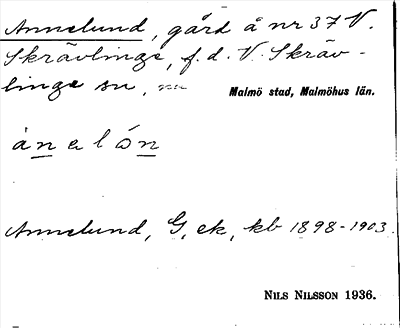 Annelund, gård å nr 37 V.
Skrävlinge, f. d. V. Skräv-
linge sn, nu Malmö stad, Malmöhus län.
ànelón
Annelund, G, ek, kb 1898-1903.
NILS NILSSON 1936.